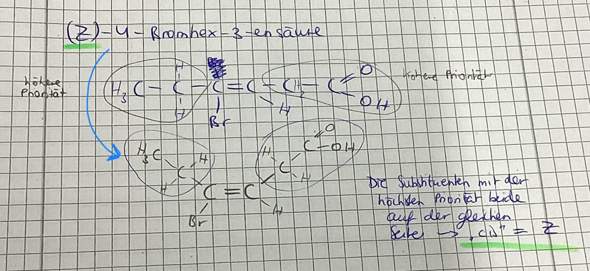 (Z)-4-Bromhex-3-ensäure
höhere Priorität
höhere Priorität
H₃C - C - C = C - CH₂ - C
H
H
Br
H
O
OH
H₃C
C
H
H
C = C
Br
H
H
H
C
C
O
OH
Die Substituenten mit der
höchsten Priorität beide
auf der gleichen
Seite → „cis" = Z